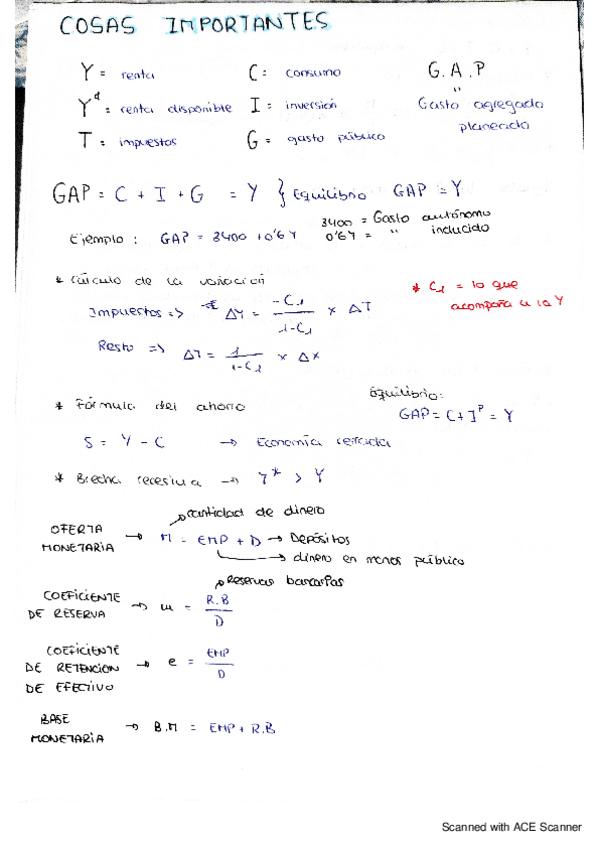 COSAS IMPORTANTES
Y = renta C = consumo G.A.P
Yd = renta disponible I = inversión " Gasto agregado
T = impuestos G = gasto público planeado
GAP = C + I + G = Y } Equilibrio GAP = Y
Ejemplo : GAP = 3400 + 0'6Y 3400 = Gasto autónomo
0'6Y = " inducido
* Cálculo de la variación
* C1 = lo que
acompaña a la Y
Impuestos => ΔY = -C1 / 1-C1 x ΔT
Resto => ΔY = 1 / 1-C1 x ΔX
* Fórmula del ahorro
Equilibrio:
GAP = C + IP = Y
S = Y - C → Economía cerrada
* Brecha recesiva → Y* > Y
cantidad de dinero
OFERTA
MONETARIA → M = EMP + D → Depósitos
→ dinero en manos público
Reservas bancarias
COEFICIENTE
DE RESERVA → w = R.B / D
COEFICIENTE
DE RETENCION → e = EMP / D
DE EFECTIVO
BASE
MONETARIA → B.M = EMP + R.B
Scanned with ACE Scanner